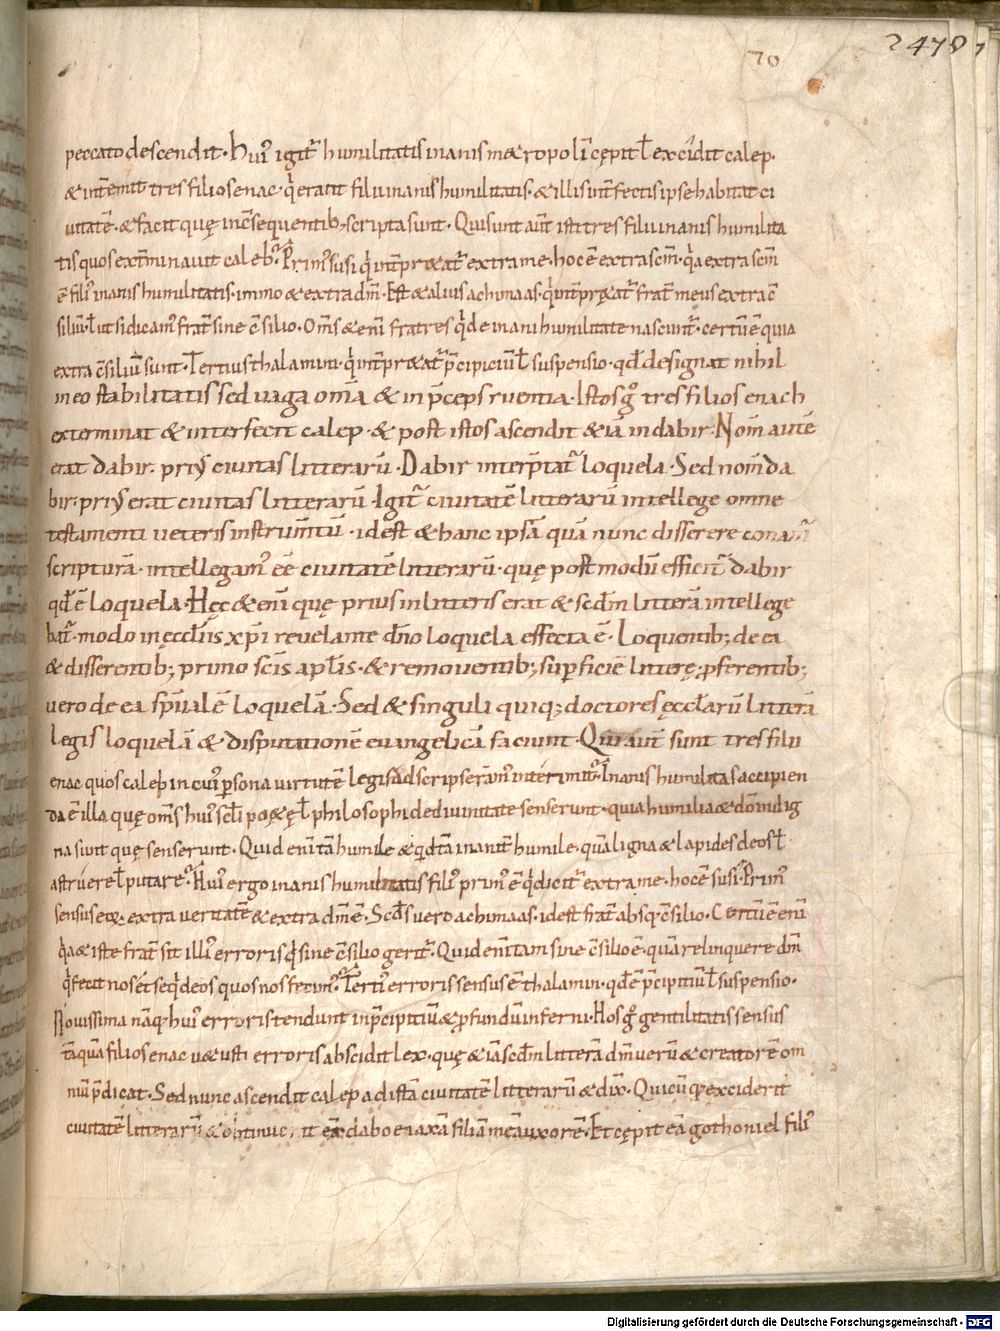 70
2478
peccato descendit · Hui᷒ igit᷒ humilitatis inanis metropoli᷒ cępit ł excidit calep ·
& int̄emit tres filios enac · q̄ erant filii inanis humilitatis · & illis int̄fectis ipse habitat ci
uitatē · & facit quę in c̄sequentib; scripta sunt · Qui sunt aūt isti tres filii inanis humilita
tis quos ext̄minauit caleb · Prim᷒ susi q̄ int̄pr&at᷒ extra me · hoc ē extra sēm · q̄a extra sēm
ē fili᷒ inanis humilitatis · immo & extra dm̄ · Est & alius achimaas · q̄ int̄pr&at᷒ frat̄ meus extra c̄
siliū · ł ut sic dicam᷒ frat̄ sine c̄silio · Om̄s & eni̅ fratres q̄ de inani humilitate nascunt᷒ · certū ē quia
extra c̄siliū sunt · Tertius thalamin · q̄ int̄pr&at᷒ p̄cipiciū ł suspensio · qd̄ designat nihil
in eo stabilitatis sed uaga om̄a & in p̄ceps ruentia · Istos g̊ tres filios enach
exterminat & interfecit calep · & post istos ascendit & iā in dabir · Nom̄ autē
erat dabir · pri᷒ ciuitas litterarū · Dabir interp̄tat᷒ loquela · Sed nom̄ da
bir · pri᷒ erat ciuitas litterarū · Igit᷒ ciuitatē litterarū intellege omne
testamenti ueteris instrum̄tū · id est & hanc ipsā quā nunc disserere conam᷒
scripturā · intellegam᷒ eē ciuitatē litterarū · quę postmodū effici᷒ dabir
qd̄ ē loquela · Hęc & eni̅ quę prius in litteris erat & scd̄m litterā intellege
bat᷒ · modo in ęccl̄iis xp̄i reuelante dn̄o loquela effecta ē · Loquentib; de ea
& disserentib; primo sc̄is apl̄is · & remouentib; sup̄ficiē litterę · p̄ferentib;
uero de ea sp̄italē loquelā · Sed & singuli quiq; doctores ęccl̄arū litterā
legis loquelā & disputationē euangelicā faciunt · Qui aūt sunt tres filii
enac quos calep in cui᷒ persona uirtutē legis adscripseram᷒ interimit᷒ · Inanis humilitas accipien
da ē illa quę om̄s hui᷒ sc̄li po&ę ł philosophi de diuinitate senserunt · quia humilia & dō indig
na sunt quę senserunt · Quid eni̅ tā humile & qd̄ tā inanit̄ humile · quā ligna & lapides deos ł
astruere ł putare · Hui᷒ ergo inanis humilitatis fili᷒ prim᷒ ē q̄ dicit᷒ extra me · hoc ē susi · Prim᷒
sensus eoꝝ · extra ueritatē & extra dm̄ ē · Scd̄s uero achimaas · id est frat̄ absq; c̄silio · Certū ē eni̅
q̄a & iste frat̄ sit illi᷒ erroris q̄ sine c̄silio gerit᷒ · Quid eni̅ tam sine c̄silio ē · quā relinquere dm̄
q̄ fecit nos et seq̄ deos quos nos fecim᷒ · Terti᷒ erroris sensus ē thalamin · qd̄ ē p̄cipitiū ł suspensio ·
Nouissima nāq; hui᷒ erroris tendunt in p̄cipitiū & p̄fundū inferni · Hos g̊ gentilitatis sensus
tāquā filios enac u&usti erroris abscidit lex · quę & iā scd̄m litterā dm̄ uerū & creatorē om
niū p̄dicat · Sed nunc ascendit calep ad istā ciuitatē litterarū & dix̄ · Quicūq; exciderit
ciuitatē litterarū & obtinuerit eā dabo ei axā filiā meā uxorē · Et cępit eā gothoniel fili᷒
Digitalisierung gefördert durch die Deutsche Forschungsgemeinschaft - DFG